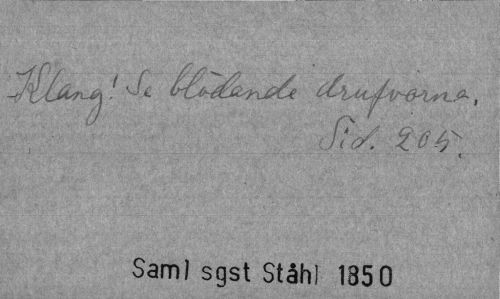 Klang! Se blödande drufvorna.
Sid. 205.
Saml sgst Ståhl 1850